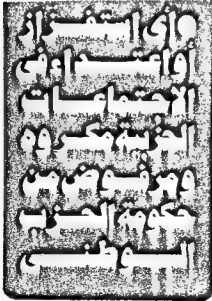 أي استفزاز
أو اعتداء في
الاجتماعات
الحزبية مكروه
ومرفوض من
حكومة الحزب
الوطني